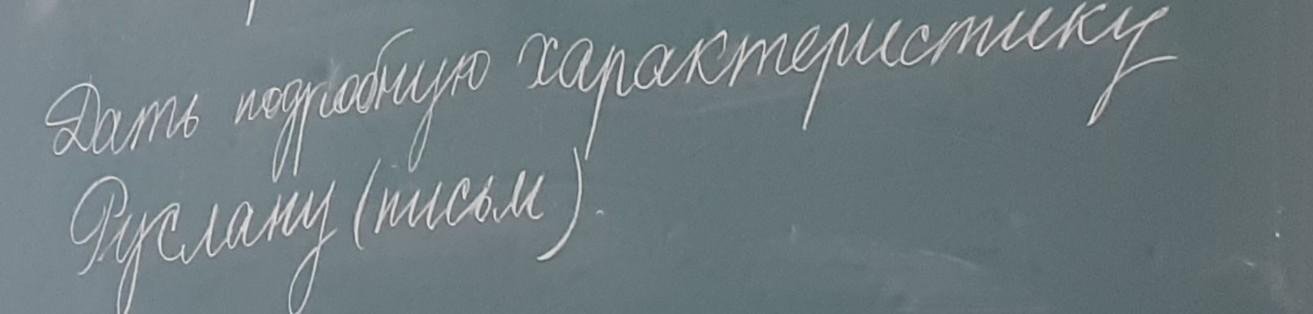 Дать подробную характеристику
Руслану (письм).